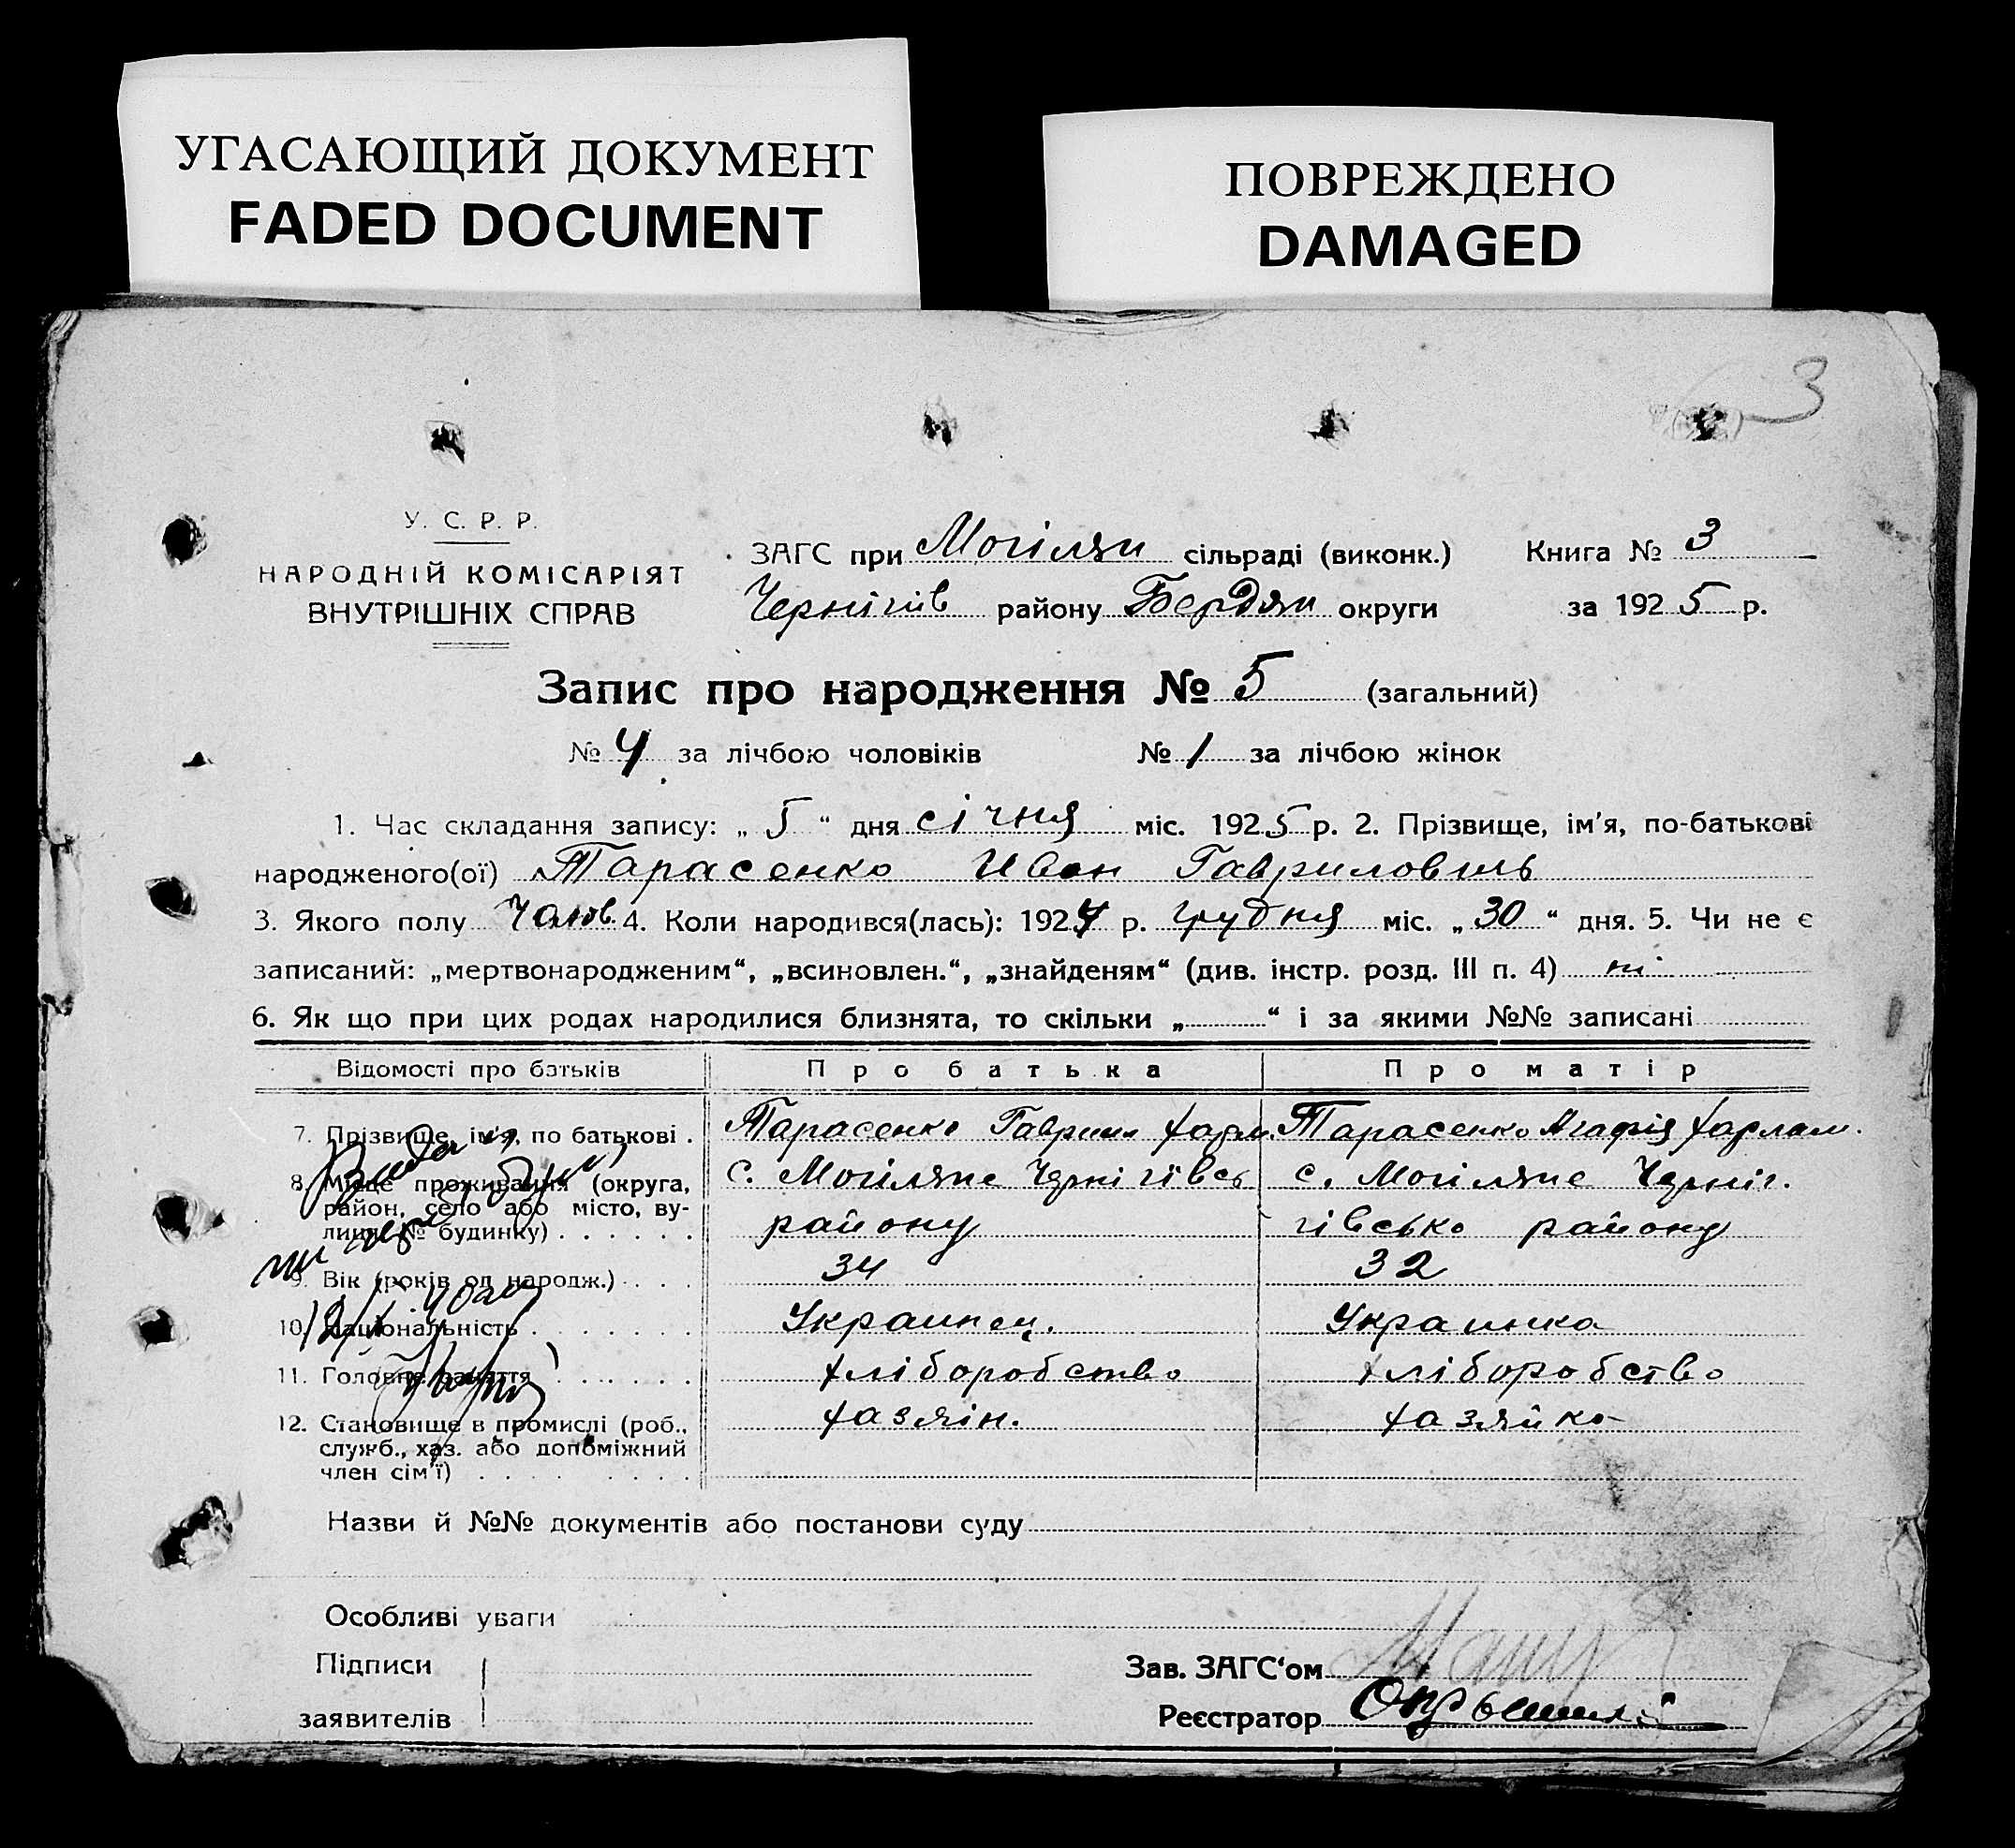 УГАСАЮЩИЙ ДОКУМЕНТ
FADED DOCUMENT
ПОВРЕЖДЕНО
DAMAGED
3
У. С. Р. Р.
НАРОДНІЙ КОМІСАРІЯТ
ВНУТРІШНІХ СПРАВ
ЗАГС при Могілян сільраді (виконк.) Книга № 3
Чернігів району Бердян округи за 1925 р.
Запис про народження № 5 (загальний)
№ 4 за лічбою чоловіків № 1 за лічбою жінок
1. Час складання запису: „ 5 “ дня січня міс. 1925 р. 2. Прізвище, ім'я, по-батькові
народженого(ої) Тарасенко Иван Гаврилович
3. Якого полу Чолов. 4. Коли народився(лась): 1924 р. грудня міс. „ 30 “ дня. 5. Чи не є
записаний: „мертвонародженим“, „всиновлен.“, „знайденям“ (див. інстр. розд. III п. 4) ні
6. Як що при цих родах народилися близнята, то скільки „ “ і за якими №№ записані
Відомості про батьків Про батька Про матір
7. Прізвище, ім'я, по батькові . Тарасенко Гаврило Харл. Тарасенко Агафія Харлам.
8. Місце проживання (округа, с. Могіляне Чернігівсь с. Могіляне Черніг.
район, село або місто, ву-
лиця, № будинку) . . . . . . району гівсько району
9. Вік (років од народж.) . . . 34 32
10. Національність . . . . . . . Украинец. Украинка
11. Головне заняття . . . . . . хліборобство хліборобство
12. Становище в промислі (роб., хазяін. хазяйка
служб., хаз. або допоміжний
член сім'ї) . . . . . . . . .
Назви й №№ документів або постанови суду
Особливі уваги
Підписи
заявителів
Зав. ЗАГС‘ом
Реєстратор